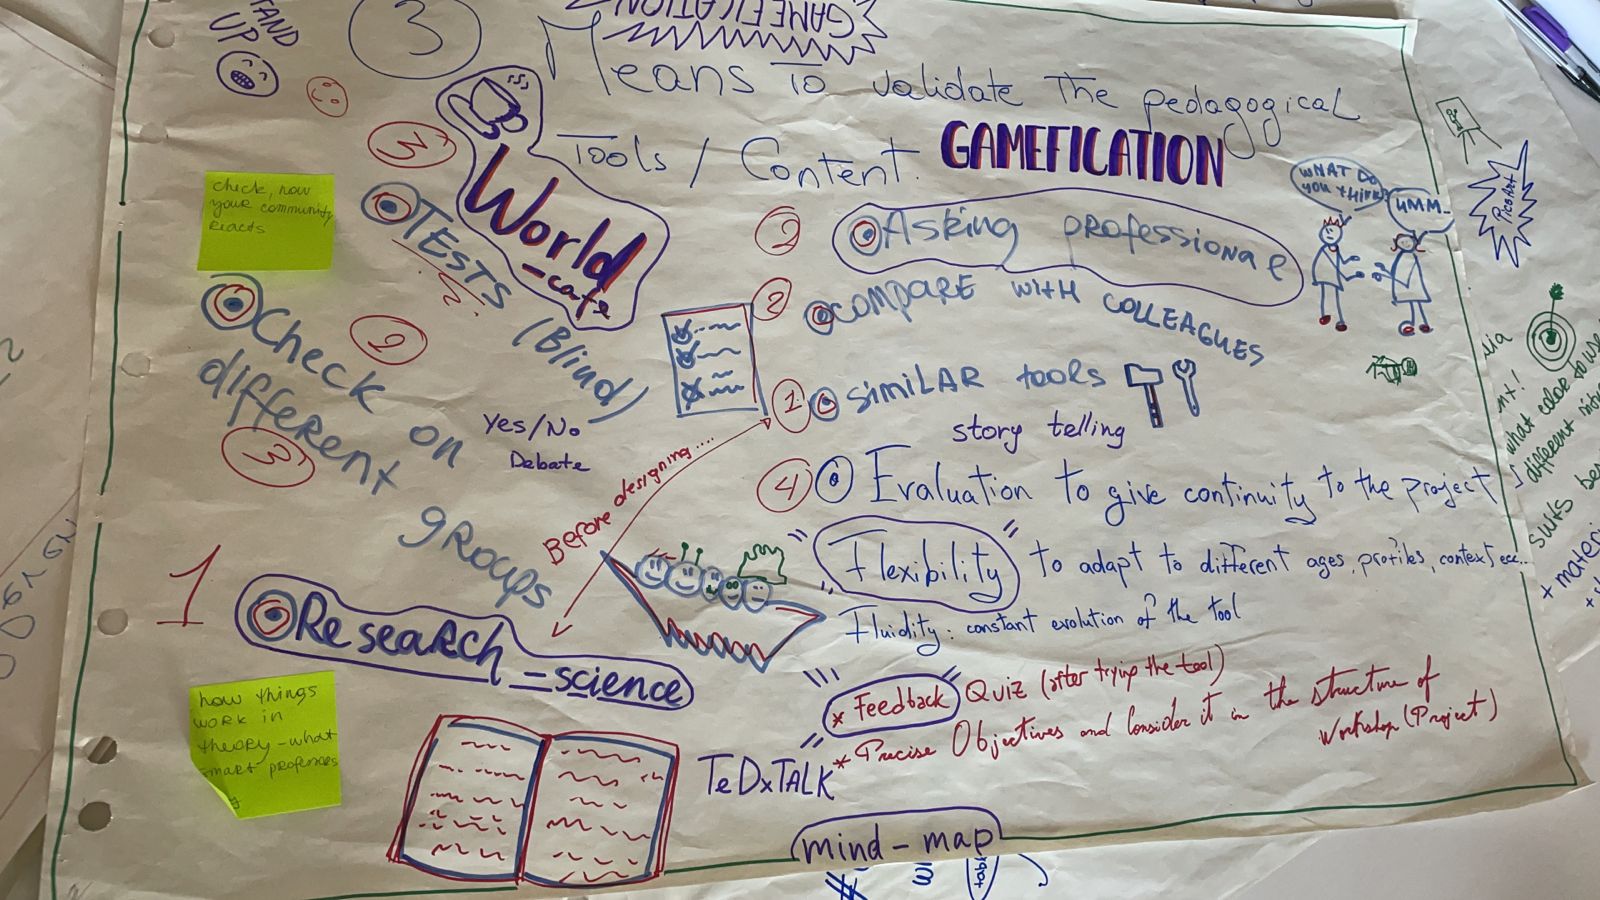 STAND
UP
3
GAMEFICATION
Means To validate The pedagogical
Tools / Content.
GAMEFICATION
World
-cafe
3
TESTS
(Blind)
?
check, how
your community
reacts
2
Check on
different
groups
3
Yes/No
Debate
2
Asking professional
WHAT DO
YOU THINK?
UMM...
PicsArt
2
COMPARE WITH COLLEAGUES
1
SIMILAR tools
story telling
Before designing....
4
Evaluation to give continuity to the project
Flexibility to adapt to different ages, profiles, context, ecc..
Fluidity: constant evolution of the tool
1
Research
=science
* Feedback Quiz (after trying the tool)
* Precise Objectives and Consider it in the structure of
Workshop (Project)
how things
work in
theory-what
smart professors
TeDxTALK
mind-map
what color to use
different
suits
+ materi